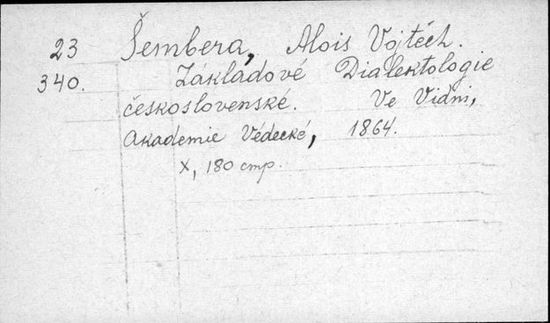 23 Šembera, Alois Vojtěch.
340. Základové Dialektologie
československé. Ve Vídni,
Akademie Védecké, 1864.
X, 180 стр.